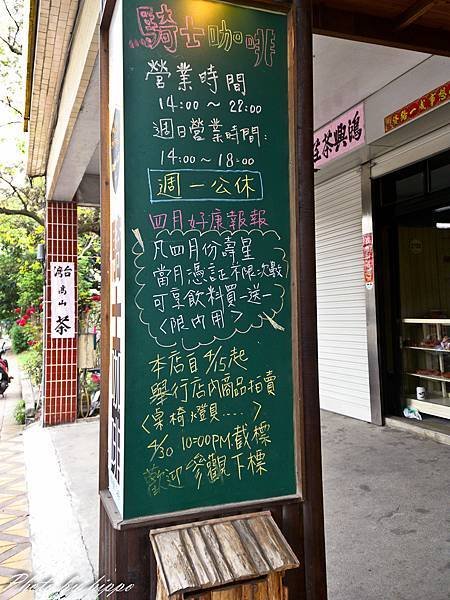 騎士咖啡
營業時間
14:00~22:00
週日營業時間:
14:00~18:00
週一公休
四月好康報報
凡四月份壽星
當月憑証不限次數
可享飲料買一送一
<限內用>
本店自4/15起
舉行店內商品拍賣
<桌椅燈具.....>
4/30 10:00PM.截標
歡迎參觀下標
高山
茶
Photo by hippo